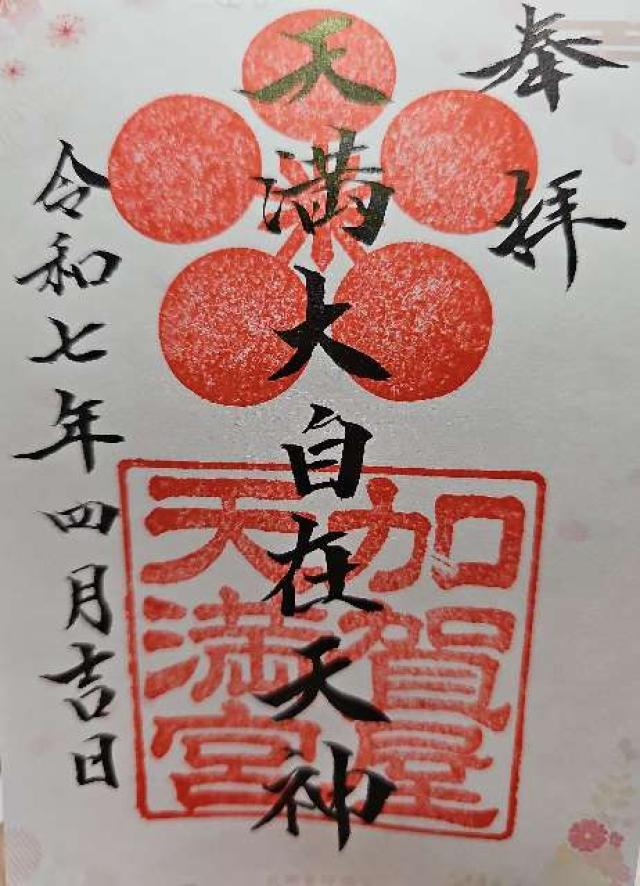 奉拝
天満大自在天神
加賀屋
天満宮
令和七年四月吉日